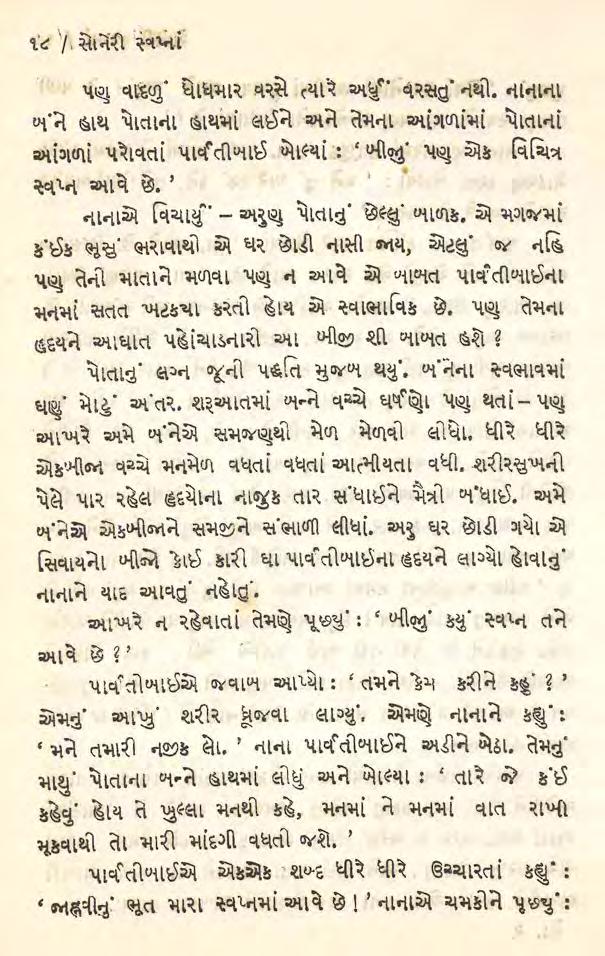 ૧૮ / સોનેરી સ્વપ્નાં
પણ વાદળું ધોધમાર વરસે ત્યારે અર્ધું વરસતું નથી. નાનાના
બંને હાથ પોતાના હાથમાં લઈને અને તેમના આંગળાંમાં પોતાનાં
આંગળાં પરોવતાં પાર્વતીબાઈ બોલ્યાં : ‘ બીજું પણ એક વિચિત્ર
સ્વપ્ન આવે છે. ’
નાનાએ વિચાર્યું – અરુણ પોતાનું છેલ્લું બાળક. એ મગજમાં
કંઈક ભૂસું ભરાવાથી એ ઘર છોડી નાસી જાય, એટલું જ નહિ
પણ તેની માતાને મળવા પણ ન આવે એ બાબત પાર્વતીબાઈના
મનમાં સતત ખટકયા કરતી હોય એ સ્વાભાવિક છે. પણ તેમના
હૃદયને આઘાત પહોંચાડનારી આ બીજી શી બાબત હશે ?
પોતાનું લગ્ન જૂની પદ્ધતિ મુજબ થયું. બંનેના સ્વભાવમાં
ઘણું મોટું અંતર. શરૂઆતમાં બન્ને વચ્ચે ઘર્ષણો પણ થતાં – પણ
આખરે અમે બંનેએ સમજણથી મેળ મેળવી લીધો. ધીરે ધીરે
એકબીજા વચ્ચે મનમેળ વધતાં વધતાં આત્મીયતા વધી. શરીરસુખની
પેલે પાર રહેલ હૃદયોના નાજુક તાર સંધાઈને મૈત્રી બંધાઈ. અમે
બંનેએ એકબીજાને સમજીને સંભાળી લીધાં. અરુ ઘર છોડી ગયો એ
સિવાયનો બીજો કોઈ કારી ઘા પાર્વતીબાઈના હૃદયને લાગ્યો હોવાનું
નાનાને યાદ આવતું નહોતું.
આખરે ન રહેવાતાં તેમણે પૂછ્યું : ‘ બીજું કયું સ્વપ્ન તને
આવે છે ? ’
પાર્વતીબાઈએ જવાબ આપ્યો : ‘ તમને કેમ કરીને કહું ? ’
એમનું આખું શરીર ધ્રૂજવા લાગ્યું. એમણે નાનાને કહ્યું :
‘ મને તમારી નજીક લો. ’ નાના પાર્વતીબાઈને અડીને બેઠા. તેમનું
માથું પોતાના બન્ને હાથમાં લીધું અને બોલ્યા : ‘ તારે જે કંઈ
કહેવું હોય તે ખુલ્લા મનથી કહે, મનમાં ને મનમાં વાત રાખી
મૂકવાથી તો મારી માંદગી વધતી જશે. ’
પાર્વતીબાઈએ એકએક શબ્દ ધીરે ધીરે ઉચ્ચારતાં કહ્યું :
‘ જાહ્નવીનું ભૂત મારા સ્વપ્નમાં આવે છે ! ’ નાનાએ ચમકીને પૂછ્યું :